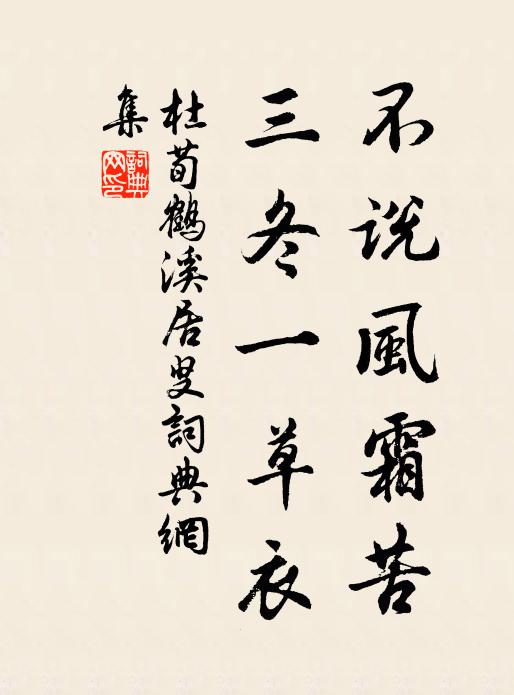 不說風霜苦
三冬一草衣
杜荀鶴溪居叟詞典網
集
詞典
网印